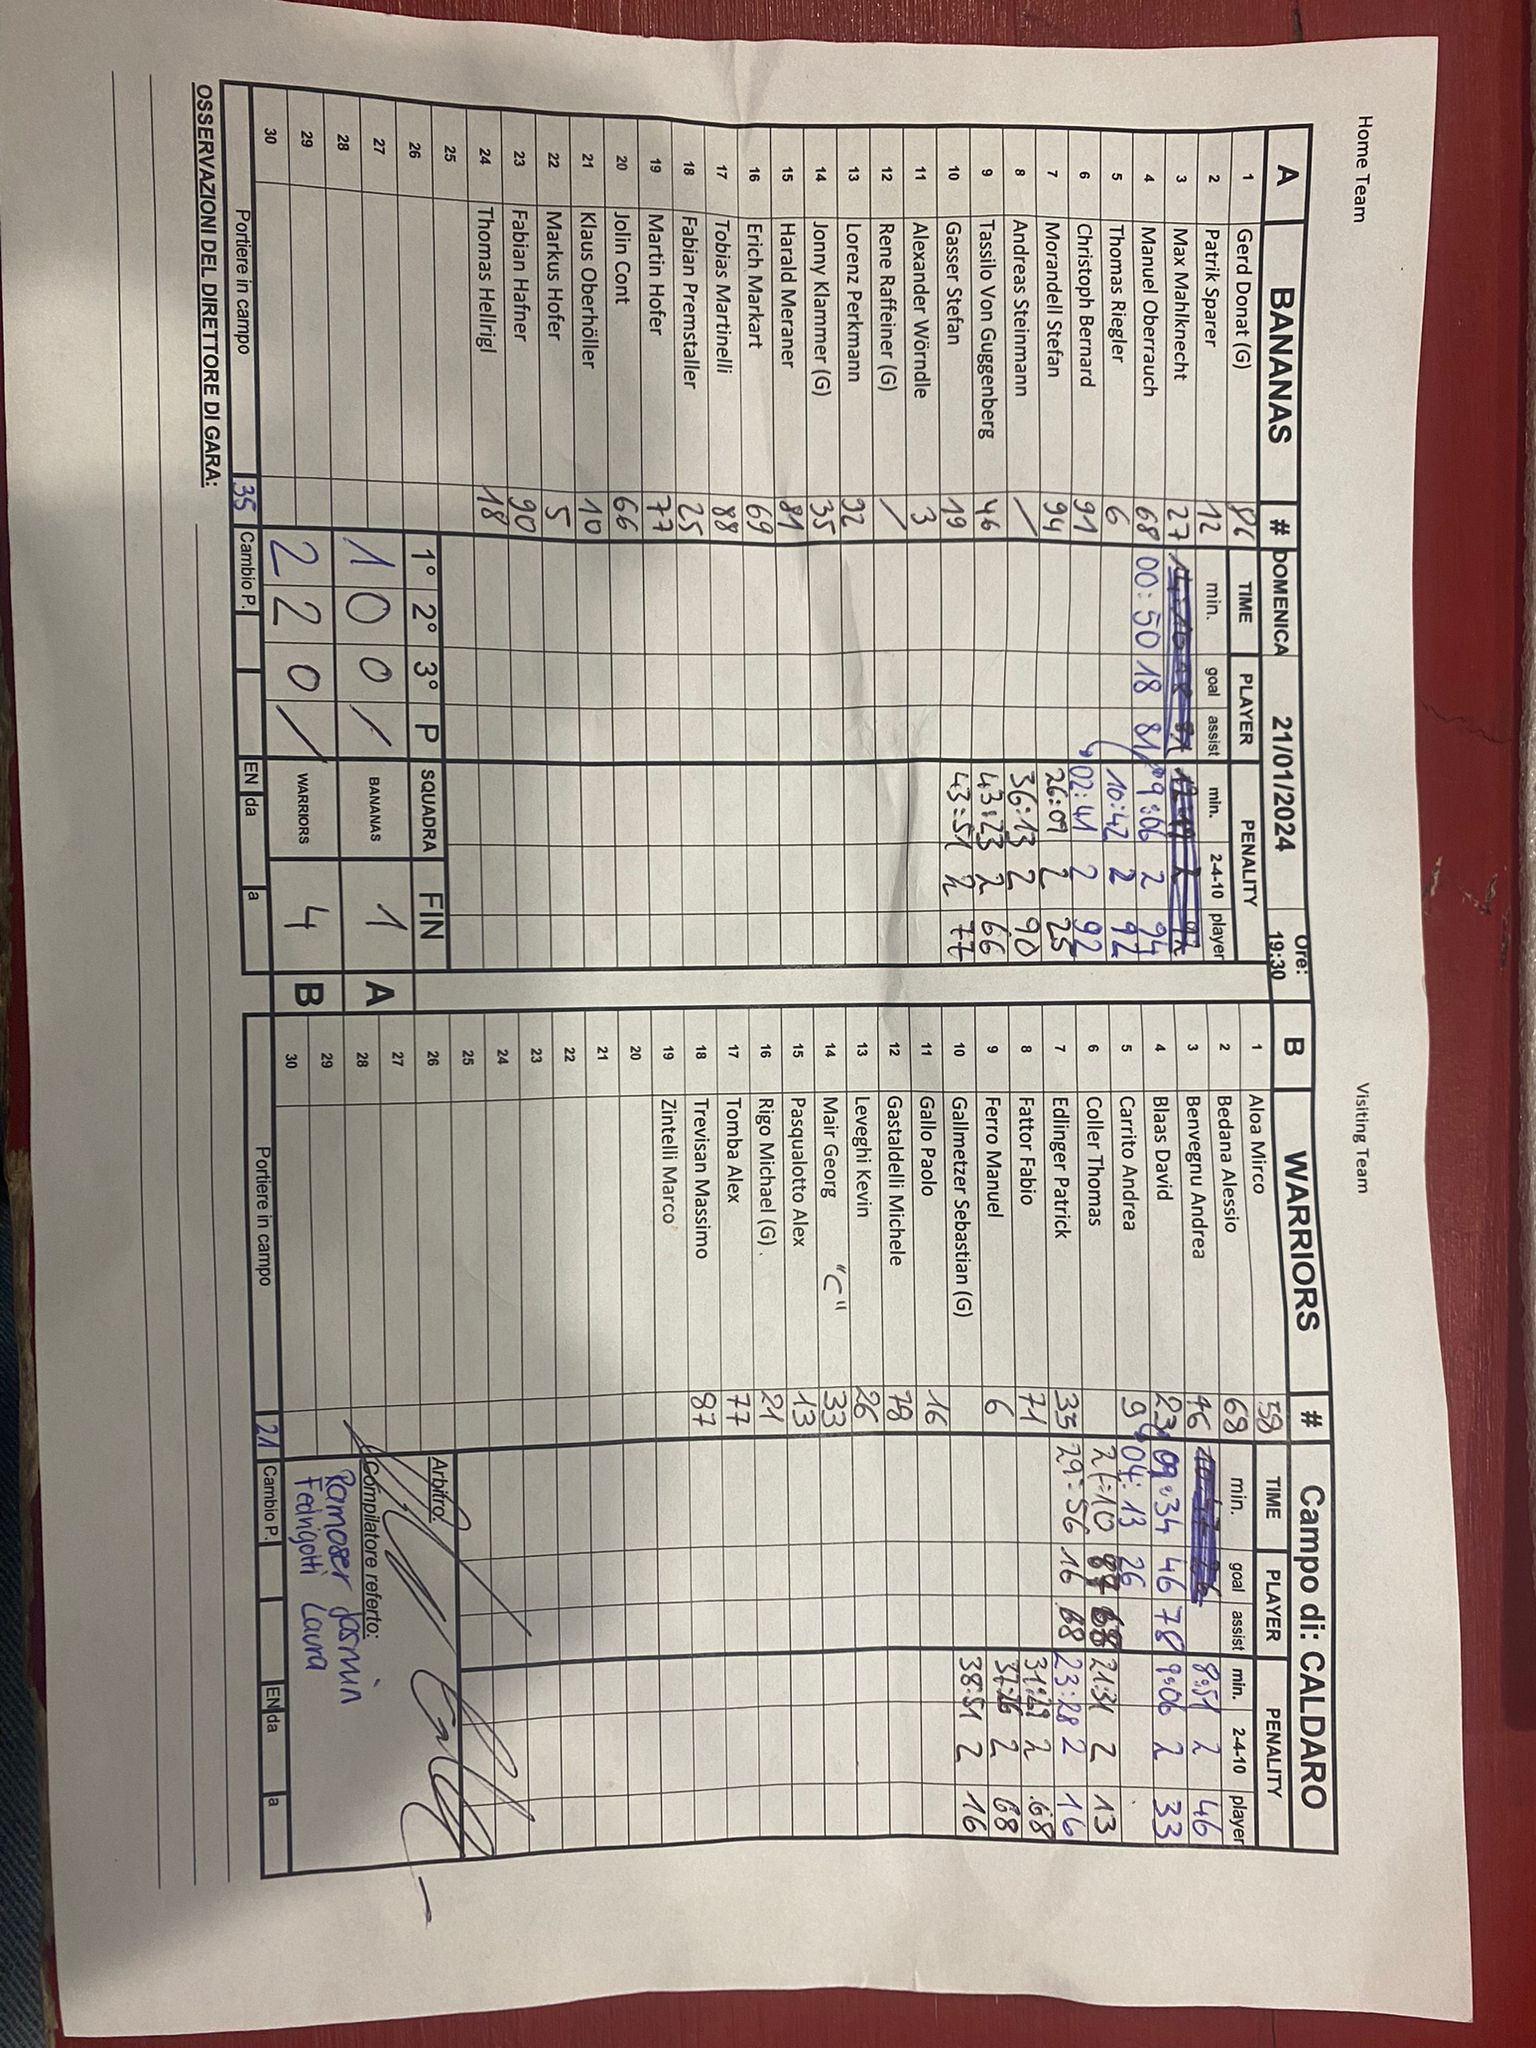 Home Team
Visiting Team
A BANANAS # DOMENICA 21/01/2024 Ore: 19:30
TIME PLAYER PENALITY
min. goal assist min. 2-4-10 player
1 Gerd Donat (G) 86
2 Patrik Sparer 12
3 Max Mahlknecht 27
4 Manuel Oberrauch 68 00:50 18 81 09:06 2 94
5 Thomas Riegler 6 10:42 2 92
6 Christoph Bernard 91 02:41 2 92
7 Morandell Stefan 94 26:09 2 25
8 Andreas Steinmann / 36:13 2 90
9 Tassilo Von Guggenberg 46 43:23 2 66
10 Gasser Stefan 19 43:51 2 77
11 Alexander Wörndle 3
12 Rene Raffeiner (G) /
13 Lorenz Perkmann 92
14 Jonny Klammer (G) 35
15 Harald Meraner 81
16 Erich Markart 69
17 Tobias Martinelli 88
18 Fabian Premstaller 25
19 Martin Hofer 77
20 Jolin Cont 66
21 Klaus Oberhöller 10
22 Markus Hofer 5
23 Fabian Hafner 90
24 Thomas Hellrigl 18
25
26 1° 2° 3° P SQUADRA FIN
27 1 0 0 / BANANAS 1 A
28
29 2 2 0 / WARRIORS 4 B
30
Portiere in campo 35 Cambio P. EN da a
B WARRIORS # Campo di: CALDARO
TIME PLAYER PENALITY
min. goal assist min. 2-4-10 player
1 Aloa Mirco 58
2 Bedana Alessio 68
3 Benvegnu Andrea 46 8:51 2 46
4 Blaas David 23 09:34 46 78 9:06 2 33
5 Carrito Andrea 9 04:13 26
6 Coller Thomas 87 68 21:31 2 13
7 Edlinger Patrick 35 29:56 16 68 23:28 2 16
8 Fattor Fabio 71 31:29 2 68
9 Ferro Manuel 6 37:26 2 68
10 Gallmetzer Sebastian (G) 38:51 2 16
11 Gallo Paolo 16
12 Gastaldelli Michele 78
13 Leveghi Kevin 26
14 Mair Georg "C" 33
15 Pasqualotto Alex 13
16 Rigo Michael (G) 21
17 Tomba Alex 77
18 Trevisan Massimo 87
19 Zintelli Marco
20
21
22
23
24
25
26 Arbitro:
27
28 Compilatore referto:
29 Ramoser Jasmin
30 Fedrigotti Laura
Portiere in campo 21 Cambio P. EN da a
OSSERVAZIONI DEL DIRETTORE DI GARA: